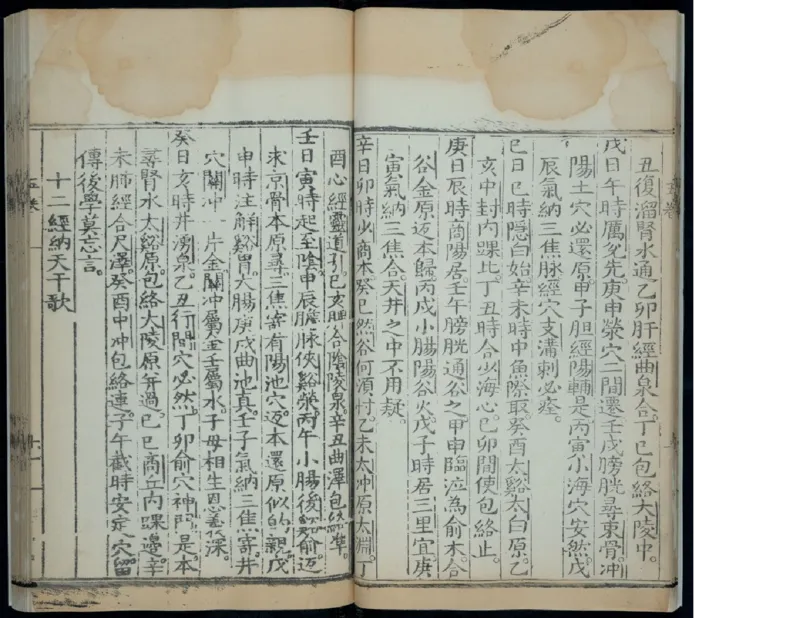 丑復溜腎水通。乙卯肝經曲泉合。丁巳包絡大陵中。
戊日午時厲兌先。庚申滎穴二間遷壬戌膀胱尋束骨。冲
陽土穴必還原。甲子胆經陽輔是。丙寅小海穴安然。戊
辰氣納三焦脉經穴支溝刺必痊。
巳日巳時隱白始。辛未時中魚際取。癸酉太谿太白原。乙
亥中封內踝比。丁丑時合少海心。巳卯間使包絡止。
庚日辰時商陽居。壬午膀胱通谷之甲申臨泣為俞木。合
谷金原返本歸丙戌小腸陽谷火。戊子時居三里宜庚
寅氣納三焦合。天井之中不用疑。
辛日卯時少商本癸巳然谷何須忖。乙未太冲原太淵。丁
酉心經靈道引。巳亥脾合陰陵泉。辛丑曲澤包絡準。
壬日寅時起至陰。甲辰膽脉俠谿滎。丙午小腸後谿俞返
求京骨本原尋。三焦寄有陽池穴。返本還原似的親。戊
申時注解谿胃。大腸庚戌曲池真。壬子氣納三焦寄井
穴關冲一片金。關冲屬金壬屬水。子母相生恩義深。
癸日亥時井湧泉。乙丑行間穴必然。丁卯俞穴神門是。本
尋腎水太谿原。包絡大陵原并過。巳巳商丘內踝邊。辛
未肺經合尺澤。癸酉中冲包絡連。子午截時安定穴。留
傳後學莫忘言。
十二經納天干歌